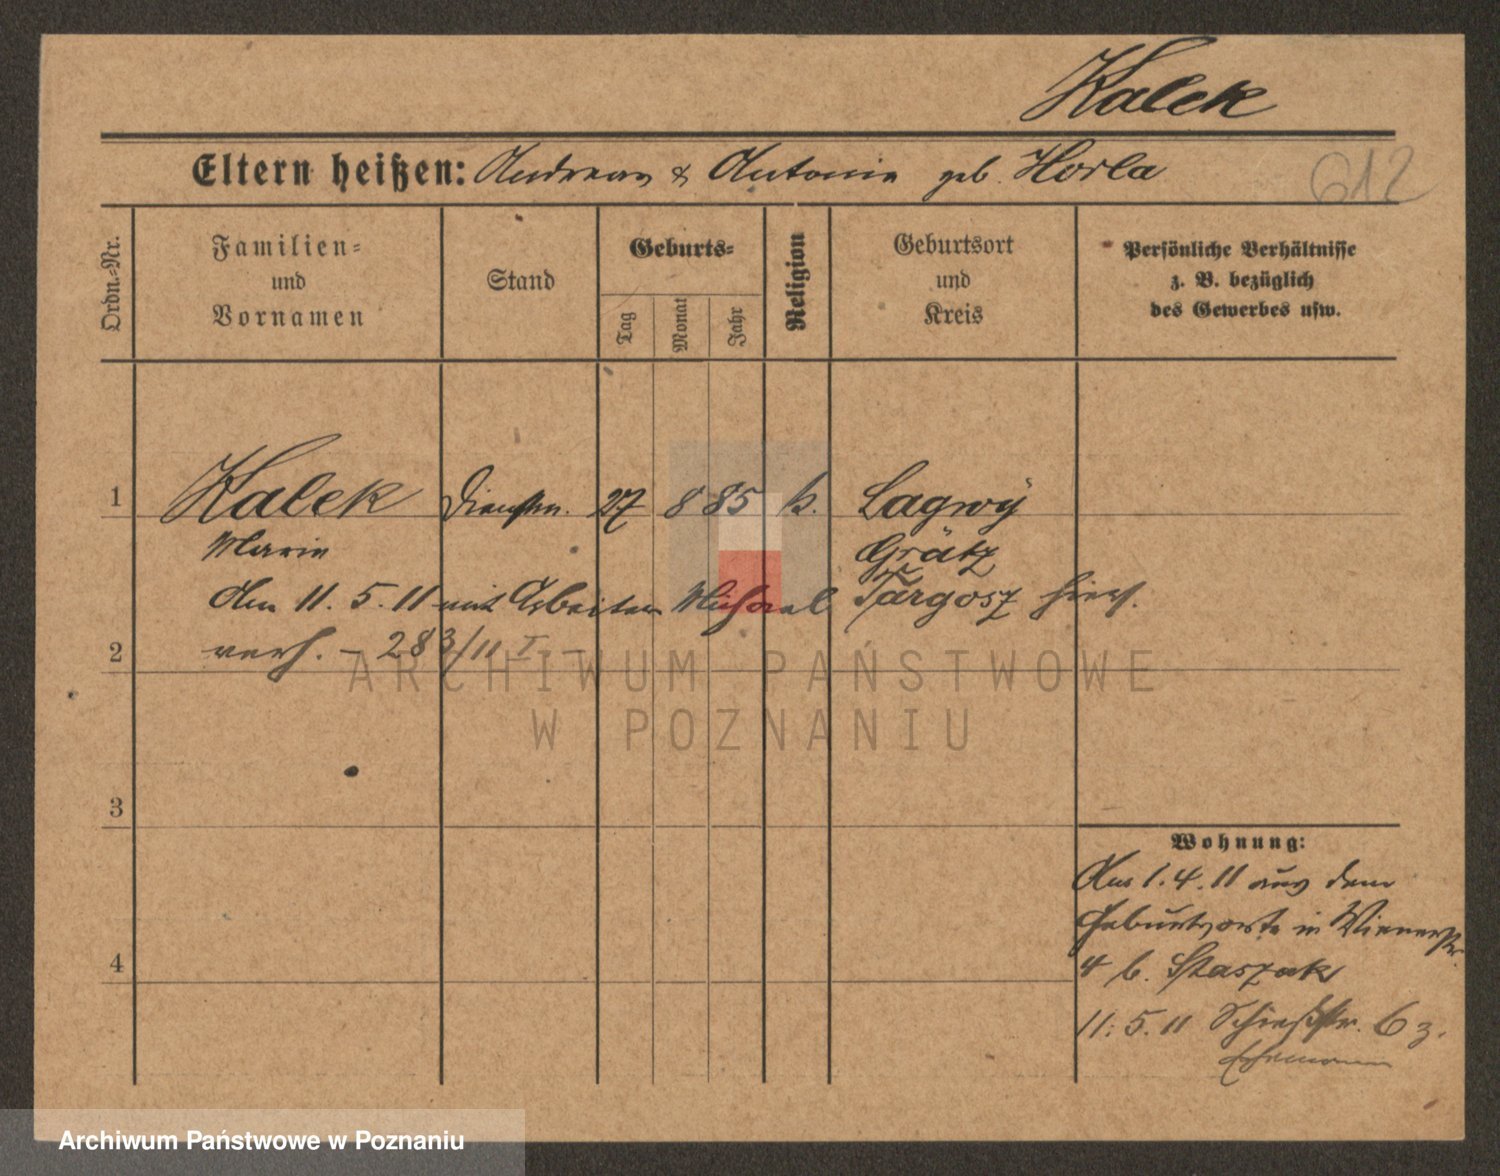 Kalek
Eltern heißen: Andreas & Antonie geb. Horla
612
Ordn.-Nr.
Familien-
und
Vornamen
Stand
Geburts-
Tag
Monat
Jahr
Religion
Geburtsort
und
Kreis
Persönliche Verhältnisse
z. B. bezüglich
des Gewerbes usw.
1 Kalek Dienstm. 27 8 85 k. Lagwy
Marie Grätz
Am 11. 5. 11 mit Arbeiter Michael Targosz hier
verh. - 283/11 I -
2
ARCHIWUM PAŃSTWOWE
W POZNANIU
3
Wohnung:
Am 1. 4. 11 aus dem
Geburtsorte in Wienerstr.
4
4 b. Staszak
11. 5. 11 Schießstr. 6 z.
Ehemann
Archiwum Państwowe w Poznaniu